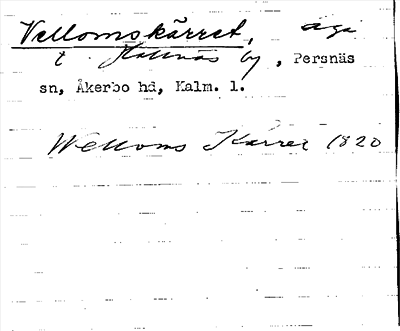 Vellomskärret, äga
t. Källnäs by, Persnäs
sn, Åkerbo hd, Kalm. l.
Welloms Kärret 1820